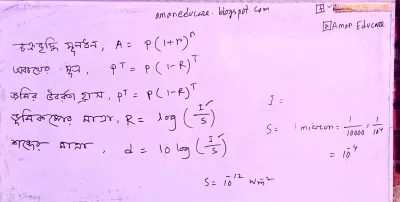 amaneducare.blogspot.com
Aman Educare
চক্রবৃদ্ধি মূলধন, A = P(1+r)^n
অবচয়ের সূত্র, P^T = P(1-R)^T
জমির উর্বরতা হ্রাস, P^T = P(1-R)^T
ভূমিকম্পের মাত্রা, R = log (I/S)
শব্দের মাত্রা, d = 10 log (I/S)
I =
S = 1 micron = 1/10000 = 1/10^4
= 10^-4
S = 10^-12 Wm^-2